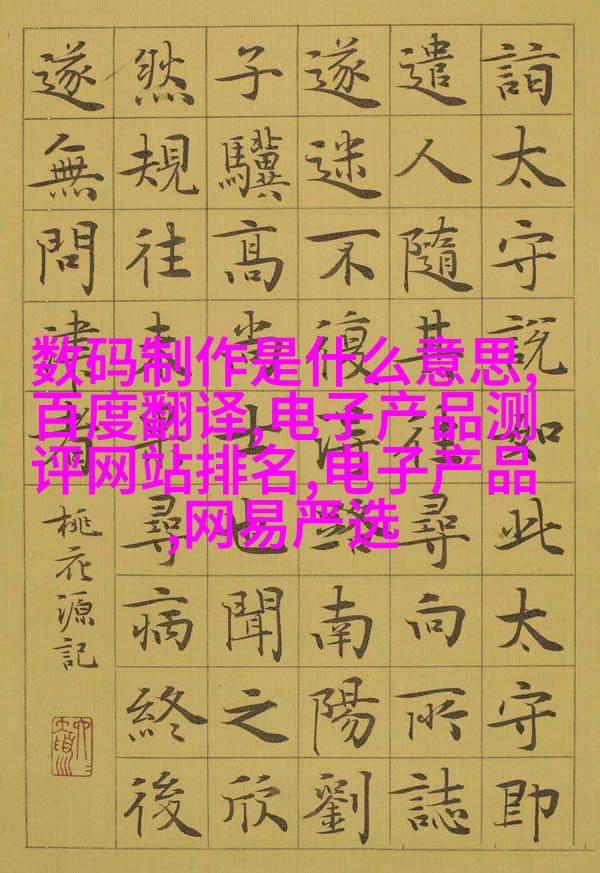 詣太守說如此太守即
遣人隨其往尋向所誌
遂迷不復得路南陽劉
子驥高尚士也聞之欣
然規往未果尋病終後
遂無問津者
桃花源記
数码制作是什么意思,
百度翻译,电子产品测
评网站排名,电子产品
,网易严选